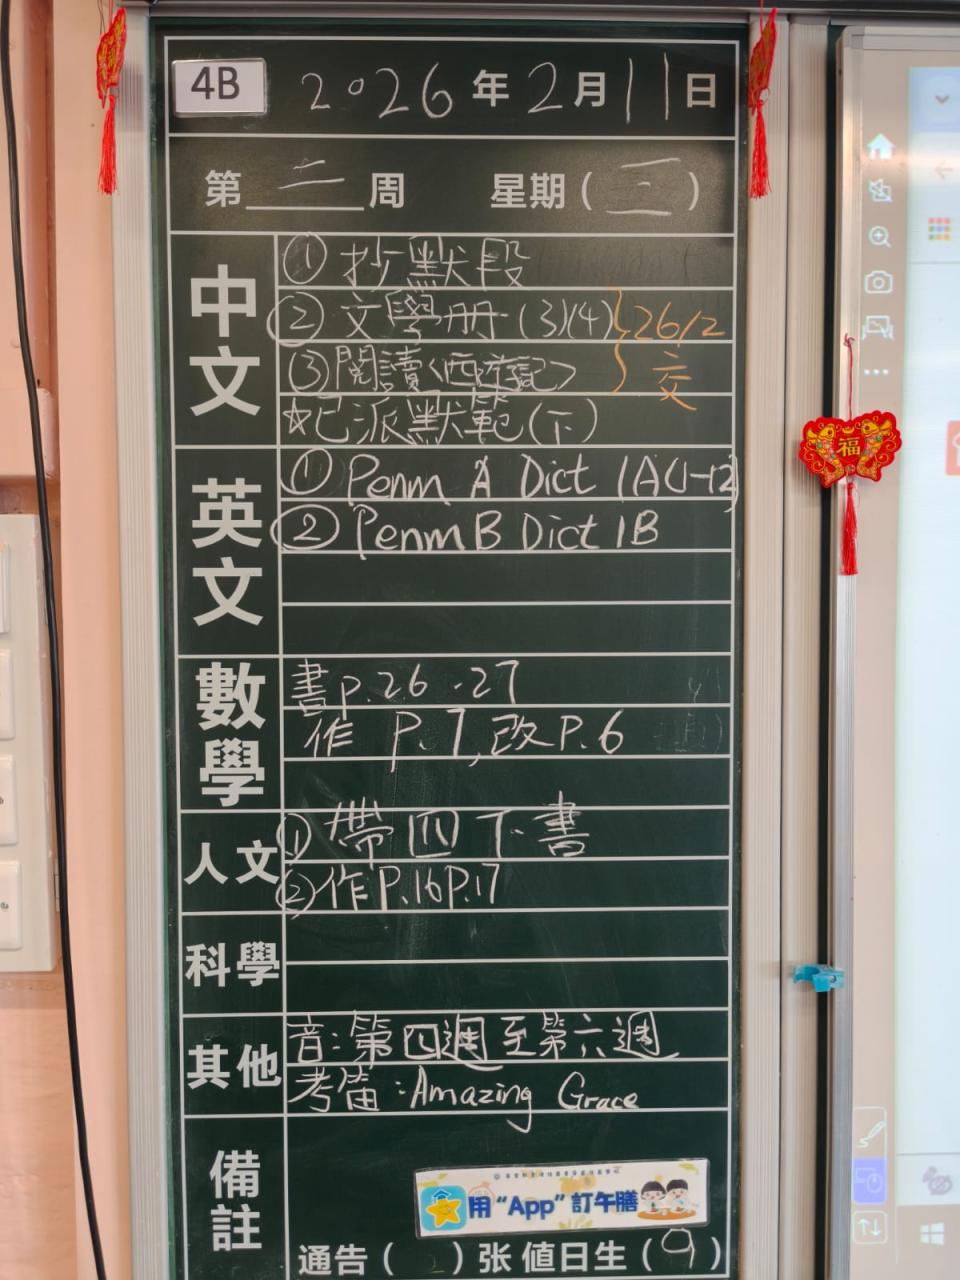 4B 2026年2月11日
第二周 星期(三)
中文
① 抄默段
② 文學冊(3)(4) } 26/2
③ 閱讀<西遊記> } 交
☆已派默範(下)
英文
① Penm A Dict 1A(1-12)
② Penm B Dict 1B
數學
書p.26-27
作 P.7,改P.6
人文
① 帶四下書
② 作P.16P.17
科學
其他
音:第四週至第六週
考笛:Amazing Grace
備註
用“App”訂午膳
通告( )张 值日生(9)
福